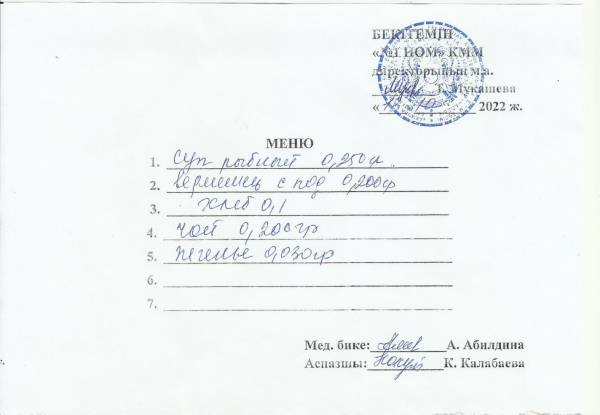 БЕКІТЕМІН
«№1 НОМ» КММ
директорының м.а.
Г. Мукашева
« 2022 ж.
МЕНЮ
1. Суп рыбный 0,250гр.
2. вермишель с под 0,200гр
3. Хлеб 0,1
4. чай 0,200гр
5. печенье 0,030гр
6.
7.
Мед. бике: А. Абилдина
Аспазшы: К. Калабаева